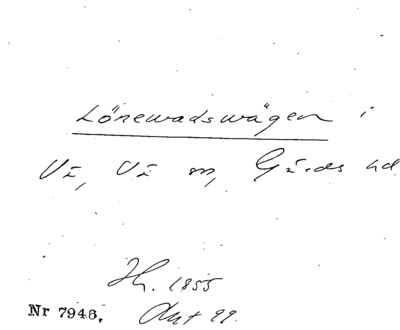 Lönewadswägen i
Vä, Vä sn, Gärds hd
Hh. 1855
Nr 7946. Akt 99.